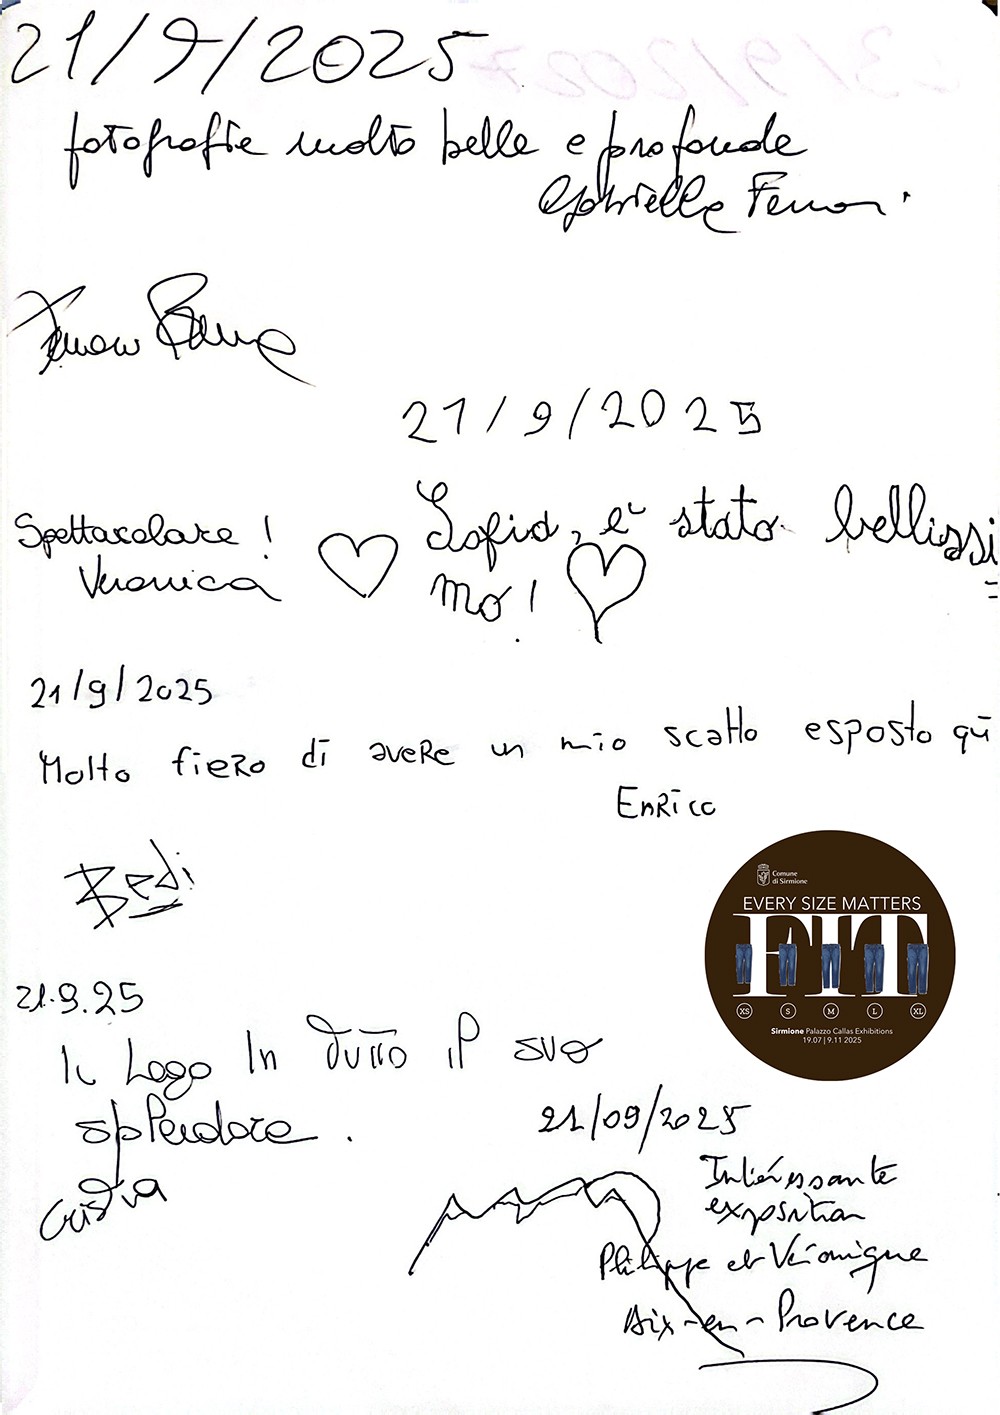 21/9/2025
fotografie molto belle e profonde
Gabriella Ferrari
21/9/2025
Spettacolare!
Veronica
Sofia, è stato bellissi
mo!
21/9/2025
Molto fiero di avere un mio scatto esposto qui
Enrico
Bedi
21.9.25
Il Lago In tutto il suo
splendore.
21/09/2025
Intéressante
exposition
Philippe et Véronique
Aix-en-Provence
Comune
di Sirmione
EVERY SIZE MATTERS
XS S M L XL
Sirmione Palazzo Callas Exhibitions
19.07 | 9.11 2025